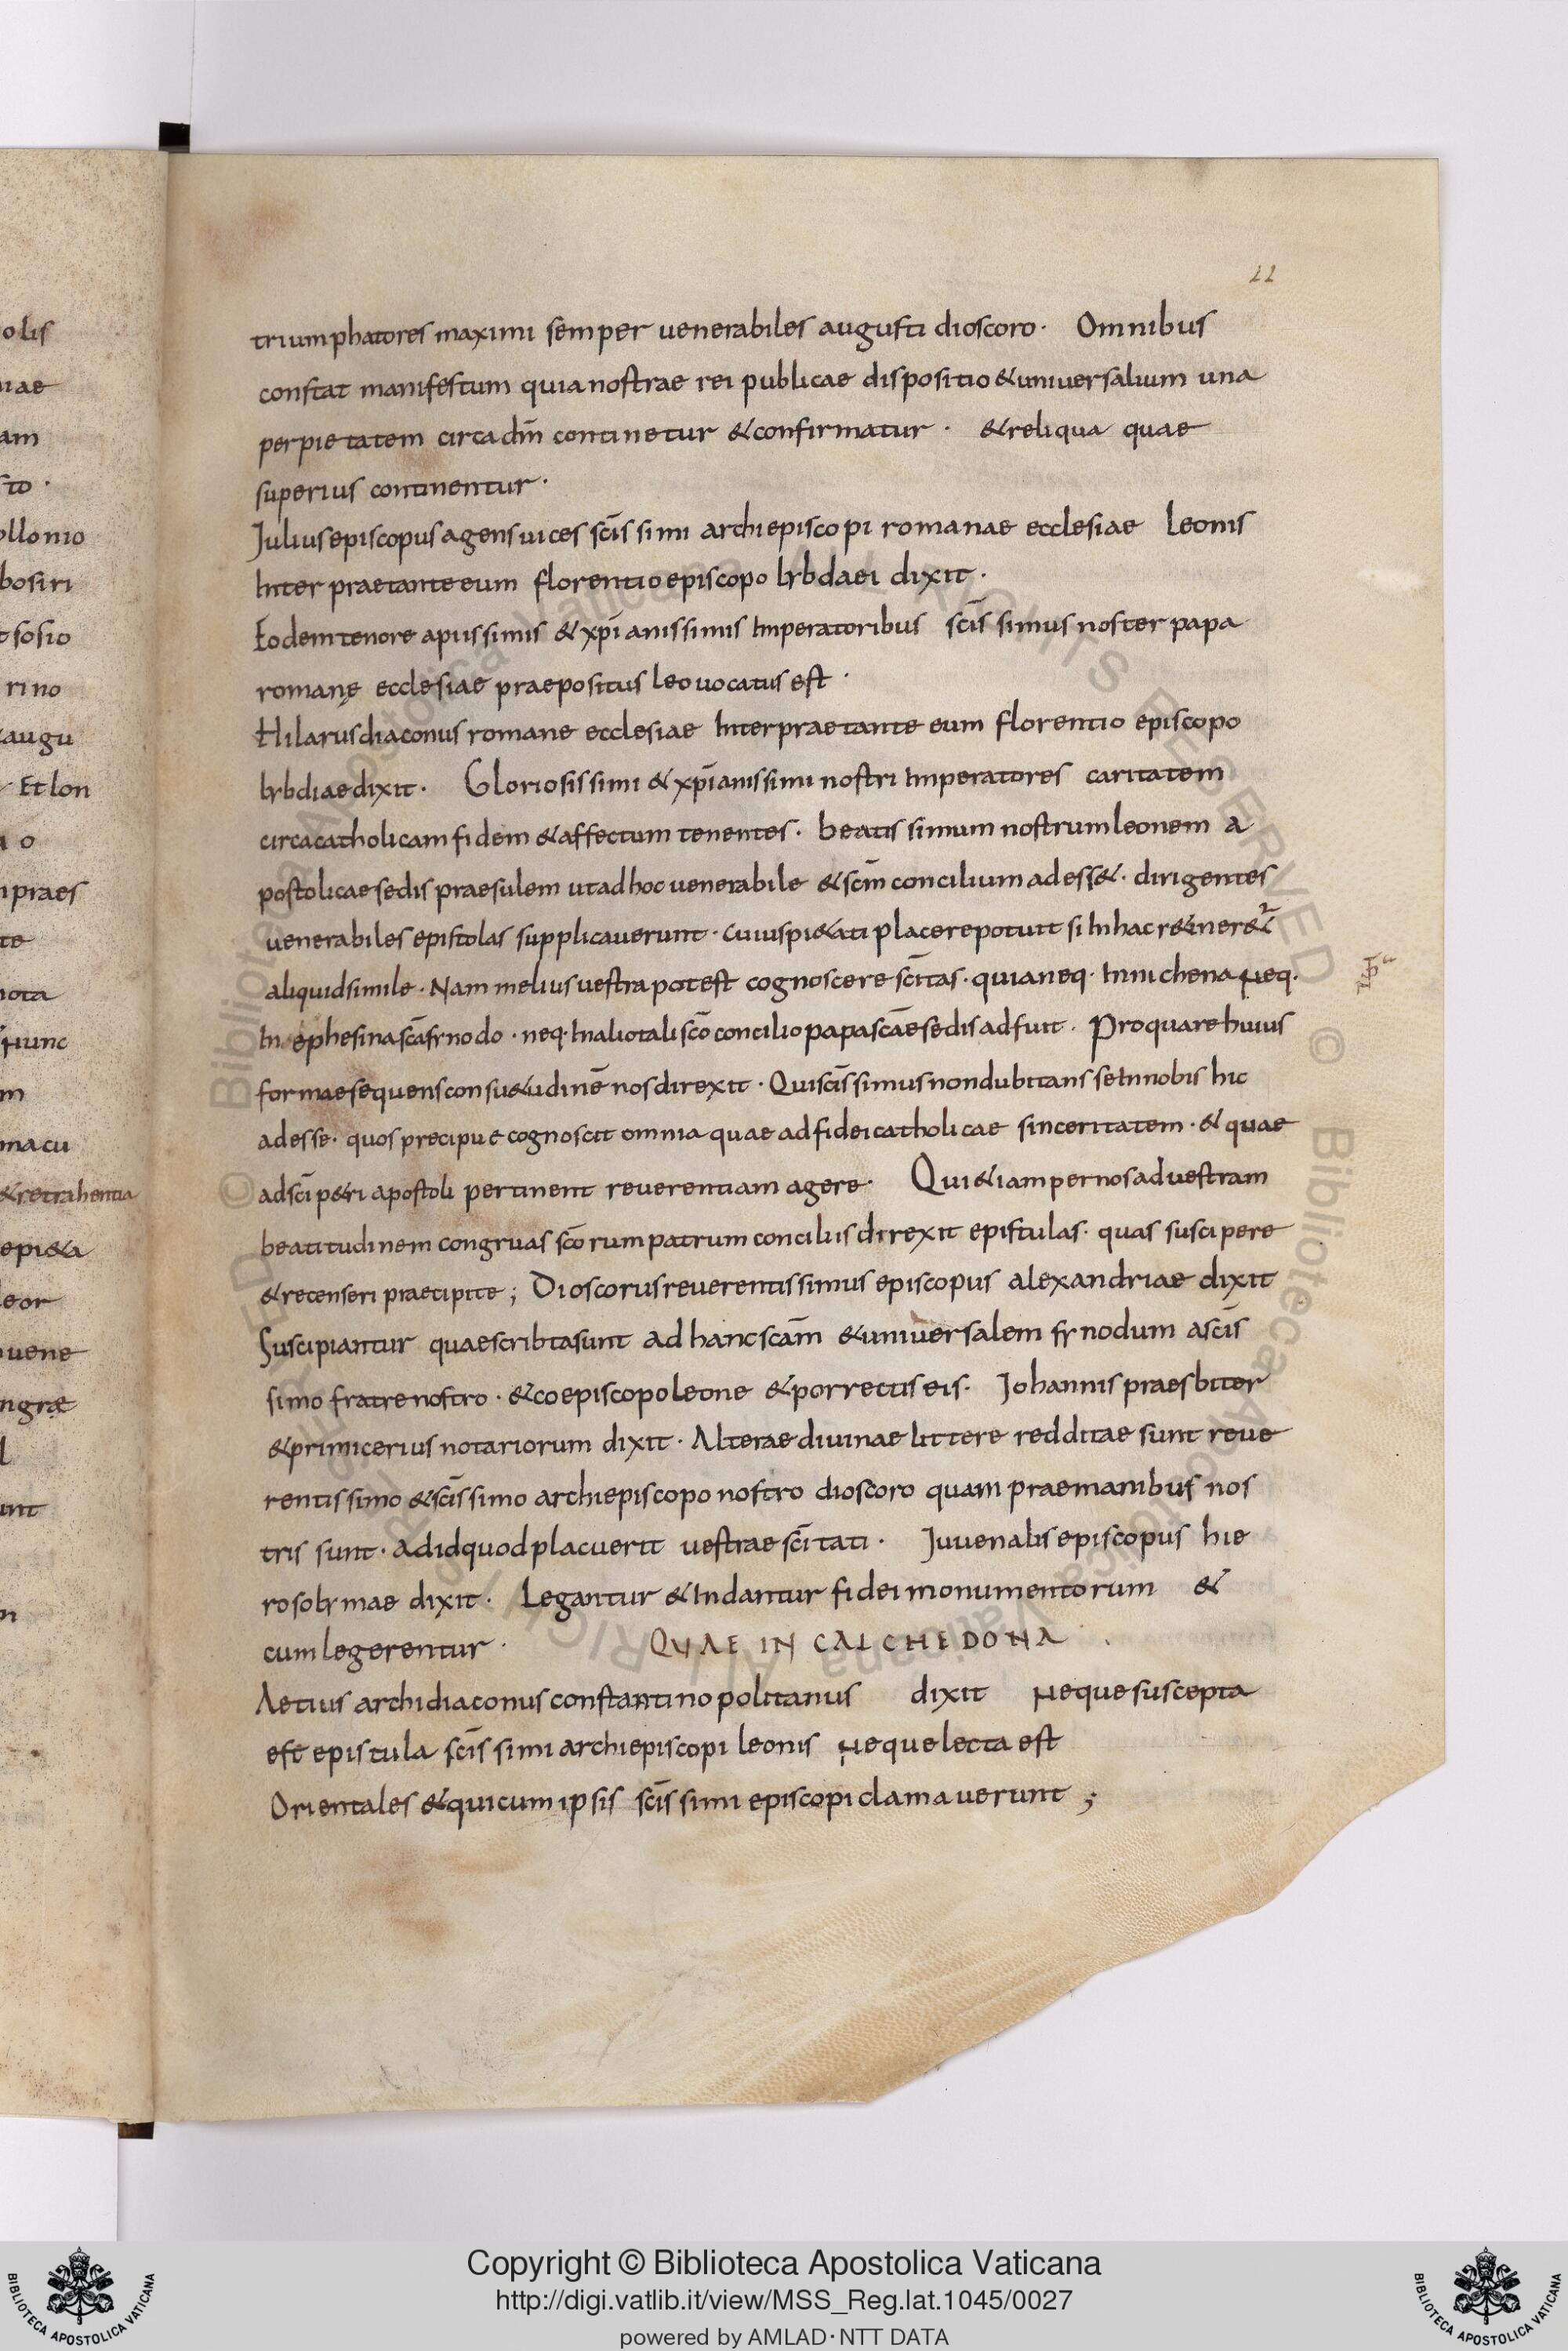 11
triumphatores maximi semper uenerabiles augusti dioscoro· Omnibus
constat manifestum quia nostrae rei publicae dispositio &uniuersalium una
perpietatem circa dm̄ continetur &confirmatur · &reliqua quae
superius continentur·
Iulius episcopus agens uices sc̄issimi archiepiscopi romanae ecclesiae leonis
Interpraetante eum florentio episcopo lybdaei dixit·
Eodem tenore apiissimis & xp̄ianissimis Imperatoribus sc̄issimus noster papa
romanę ecclesiae praepositus leo uocatus est ·
Hilarus diaconus romane ecclesiae Interpraetante eum florentio episcopo
lybdiae dixit· Gloriosissimi & xp̄ianissimi nostri Imperatores caritatem
circa catholicam fidem &affectum tenentes· beatissimum nostrum leonem a
postolicae sedis praesulem ut ad hoc uenerabile &sc̄m concilium adess&· dirigentes
uenerabiles epistolas supplicauerunt· cuius pi&ati placere potuit si In hac r& Iner&
aliquid simile· Nam melius uestra potest cognoscere sc̄itas· quia neq· In nichena neq·
In ephesina sc̄a synodo · neq· In alio tali sc̄o concilio papa sc̄ae sedis adfuit· Pro qua re huius
formae sequens consu&udinē nos direxit· Qui sc̄issimus non dubitans se In nobis hic
adesse· quos precipue cognoscit omnia quae ad fidei catholicae sinceritatem· & quae
ad sc̄i p&ri apostoli pertinent reuerentiam agere· Qui &iam per nos ad uestram
beatitudinem congruas sc̄orum patrum conciliis direxit epistulas· quas suscipere
&recenseri praecipite ; Dioscorus reuerentissimus episcopus alexandriae dixit
Suscipiantur quae scribta sunt ad hanc sc̄am &uniuersalem synodum a sc̄is
simo fratre nostro· &coepiscopo leone &porrectis eis· Iohannis praesbiter
&primicerius notariorum dixit· Alterae diuinae littere redditae sunt reue
rentissimo &sc̄issimo archiepiscopo nostro dioscoro quam prae manibus nos
tris sunt· ad id quod placuerit uestrae sc̄itati· Iuuenalis episcopus hie
rosolymae dixit· Legantur &Indantur fidei monumentorum &
cum legerentur· QUAE IN CALCHEDONA
Aetius archidiaconus constantinopolitanus dixit neque suscepta
est epistula sc̄issimi archiepiscopi leonis neque lecta est
Orientales &qui cum ipsis sc̄issimi episcopi clamauerunt ;
olis
iae
am
sto·
ollonio
bosiri
sosio
rino
augu
Et lon
o
praes
te
nota
nunc
m
macu
&retrahentia
epi&a
leor
uene
ngrae
l
unt
n
© Biblioteca Apostolica Vaticana ALL RIGHTS RESERVED
Copyright © Biblioteca Apostolica Vaticana
http://digi.vatlib.it/view/MSS_Reg.lat.1045/0027
powered by AMLAD·NTT DATA
BIBLIOTECA APOSTOLICA VATICANA
BIBLIOTECA APOSTOLICA VATICANA